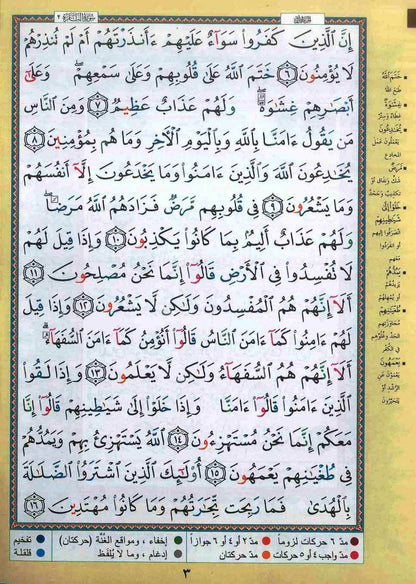 سورة البقرة ٢
إِنَّ ٱلَّذِينَ كَفَرُوا۟ سَوَآءٌ عَلَيْهِمْ ءَأَنذَرْتَهُمْ أَمْ لَمْ تُنذِرْهُمْ
لَا يُؤْمِنُونَ ٦ خَتَمَ ٱللَّهُ عَلَىٰ قُلُوبِهِمْ وَعَلَىٰ سَمْعِهِمْ ۖ وَعَلَىٰٓ
أَبْصَـٰرِهِمْ غِشَـٰوَةٌ ۖ وَلَهُمْ عَذَابٌ عَظِيمٌ ٧ وَمِنَ ٱلنَّاسِ
مَن يَقُولُ ءَامَنَّا بِٱللَّهِ وَبِٱلْيَوْمِ ٱلْـَٔاخِرِ وَمَا هُم بِمُؤْمِنِينَ ٨
يُخَـٰدِعُونَ ٱللَّهَ وَٱلَّذِينَ ءَامَنُوا۟ وَمَا يَخْدَعُونَ إِلَّآ أَنفُسَهُمْ
وَمَا يَشْعُرُونَ ٩ فِى قُلُوبِهِم مَّرَضٌ فَزَادَهُمُ ٱللَّهُ مَرَضًا ۖ
وَلَهُمْ عَذَابٌ أَلِيمٌۢ بِمَا كَانُوا۟ يَكْذِبُونَ ١٠ وَإِذَا قِيلَ لَهُمْ
لَا تُفْسِدُوا۟ فِى ٱلْأَرْضِ قَالُوٓا۟ إِنَّمَا نَحْنُ مُصْلِحُونَ ١١
أَلَآ إِنَّهُمْ هُمُ ٱلْمُفْسِدُونَ وَلَـٰكِن لَّا يَشْعُرُونَ ١٢ وَإِذَا قِيلَ
لَهُمْ ءَامِنُوا۟ كَمَآ ءَامَنَ ٱلنَّاسُ قَالُوٓا۟ أَنُؤْمِنُ كَمَآ ءَامَنَ ٱلسُّفَهَآءُ ۗ
أَلَآ إِنَّهُمْ هُمُ ٱلسُّفَهَآءُ وَلَـٰكِن لَّا يَعْلَمُونَ ١٣ وَإِذَا لَقُوا۟
ٱلَّذِينَ ءَامَنُوا۟ قَالُوٓا۟ ءَامَنَّا وَإِذَا خَلَوْا۟ إِلَىٰ شَيَـٰطِينِهِمْ قَالُوٓا۟ إِنَّا
مَعَكُمْ إِنَّمَا نَحْنُ مُسْتَهْزِءُونَ ١٤ ٱللَّهُ يَسْتَهْزِئُ بِهِمْ وَيَمُدُّهُمْ
فِى طُغْيَـٰنِهِمْ يَعْمَهُونَ ١٥ أُو۟لَـٰٓئِكَ ٱلَّذِينَ ٱشْتَرَوُا۟ ٱلضَّلَـٰلَةَ
بِٱلْهُدَىٰ فَمَا رَبِحَت تِّجَـٰرَتُهُمْ وَمَا كَانُوا۟ مُهْتَدِينَ ١٦
خَتَمَ اللهُ
طَبَعَ اللهُ
غِشَاوَةٌ
غِطَاءٌ وسِتْرٌ
يُخَادِعُونَ
مَرَضٌ
خَلَوْا إلى
شَيَاطِينِهِم
يَمُدُّهُم
طُغْيَانِهِم
يَعْمَهُونَ
مدّ ٦ حركات لزوماً
مدّ ٢ أو ٤ أو ٦ جوازاً
إخفاء، ومواقع الغُنَّة (حركتان)
تفخيم
مدّ واجب ٤ أو ٥ حركات
مدّ حركتان
إدغام، وما لا يُلفَظ
قلقلة
٣